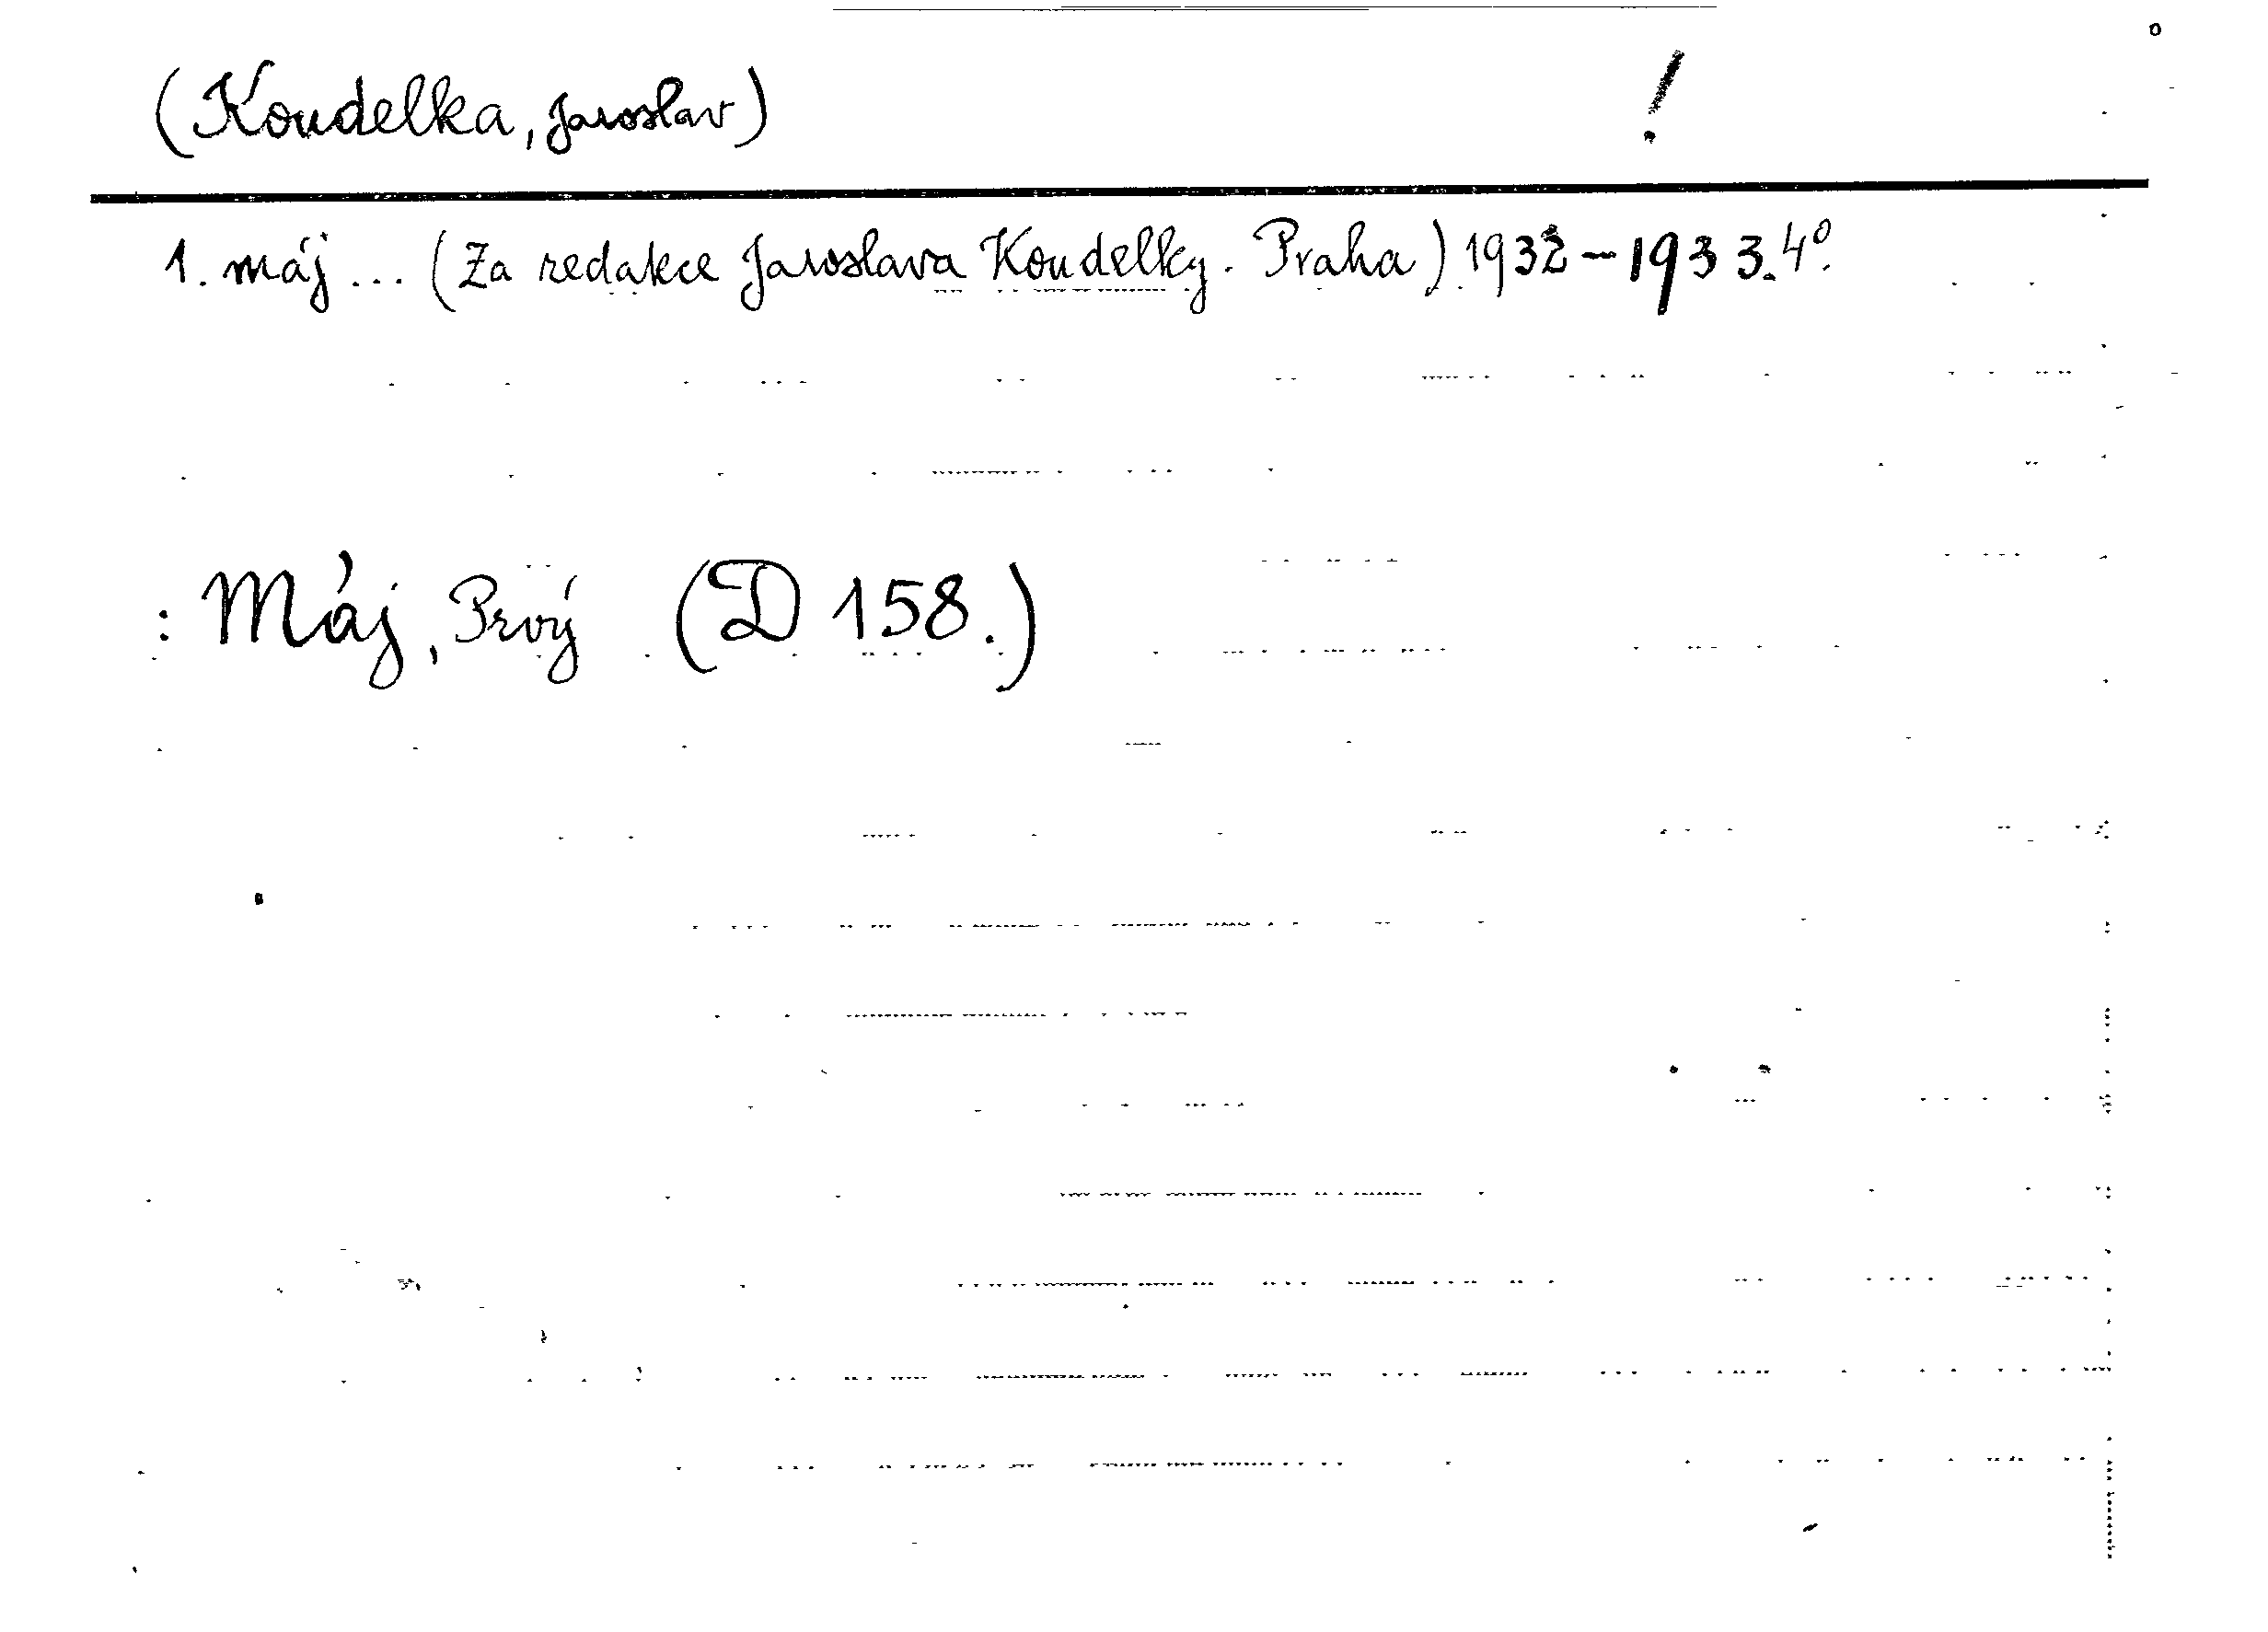 (Koudelka, Jaroslav) !
1. máj ... (Za redakce Jaroslava Koudelky. Praha) 1932 - 1933. 4°.
: Máj, Prvý (D 158.)